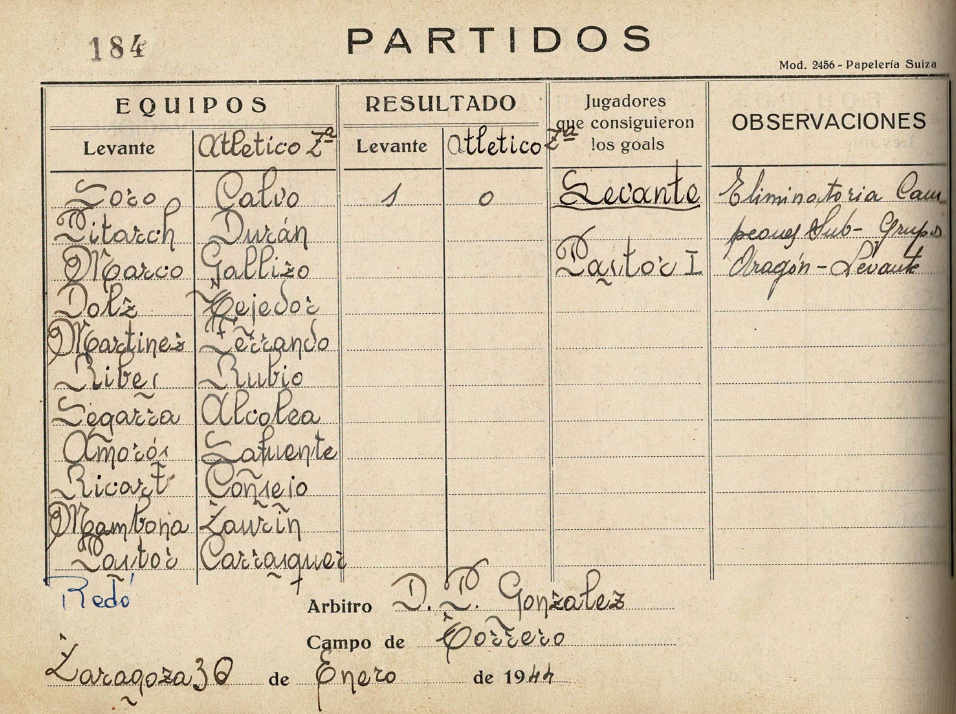 184
PARTIDOS
Mod. 2456 - Papelería Suiza
EQUIPOS RESULTADO Jugadores que consiguieron los goals OBSERVACIONES
Levante Atletico Zª Levante Atletico Zª
Soro Calvo 1 0 Levante Eliminatoria Cam
Pitarch Durán peones Sub-Grupo
Marco Gallizo Pastor I Aragón-Levante
Dolz Tejedor
Martinez Ferrando
Riber Rubio
Segarra Alcolea
Amorós Lafuente
Ricart Consejo
Mambona Zaurin
Pastor Carrasquer
Redó
Arbitro D. P. Gonzalez
Campo de Torrero
Zaragoza 30 de Enero de 1944